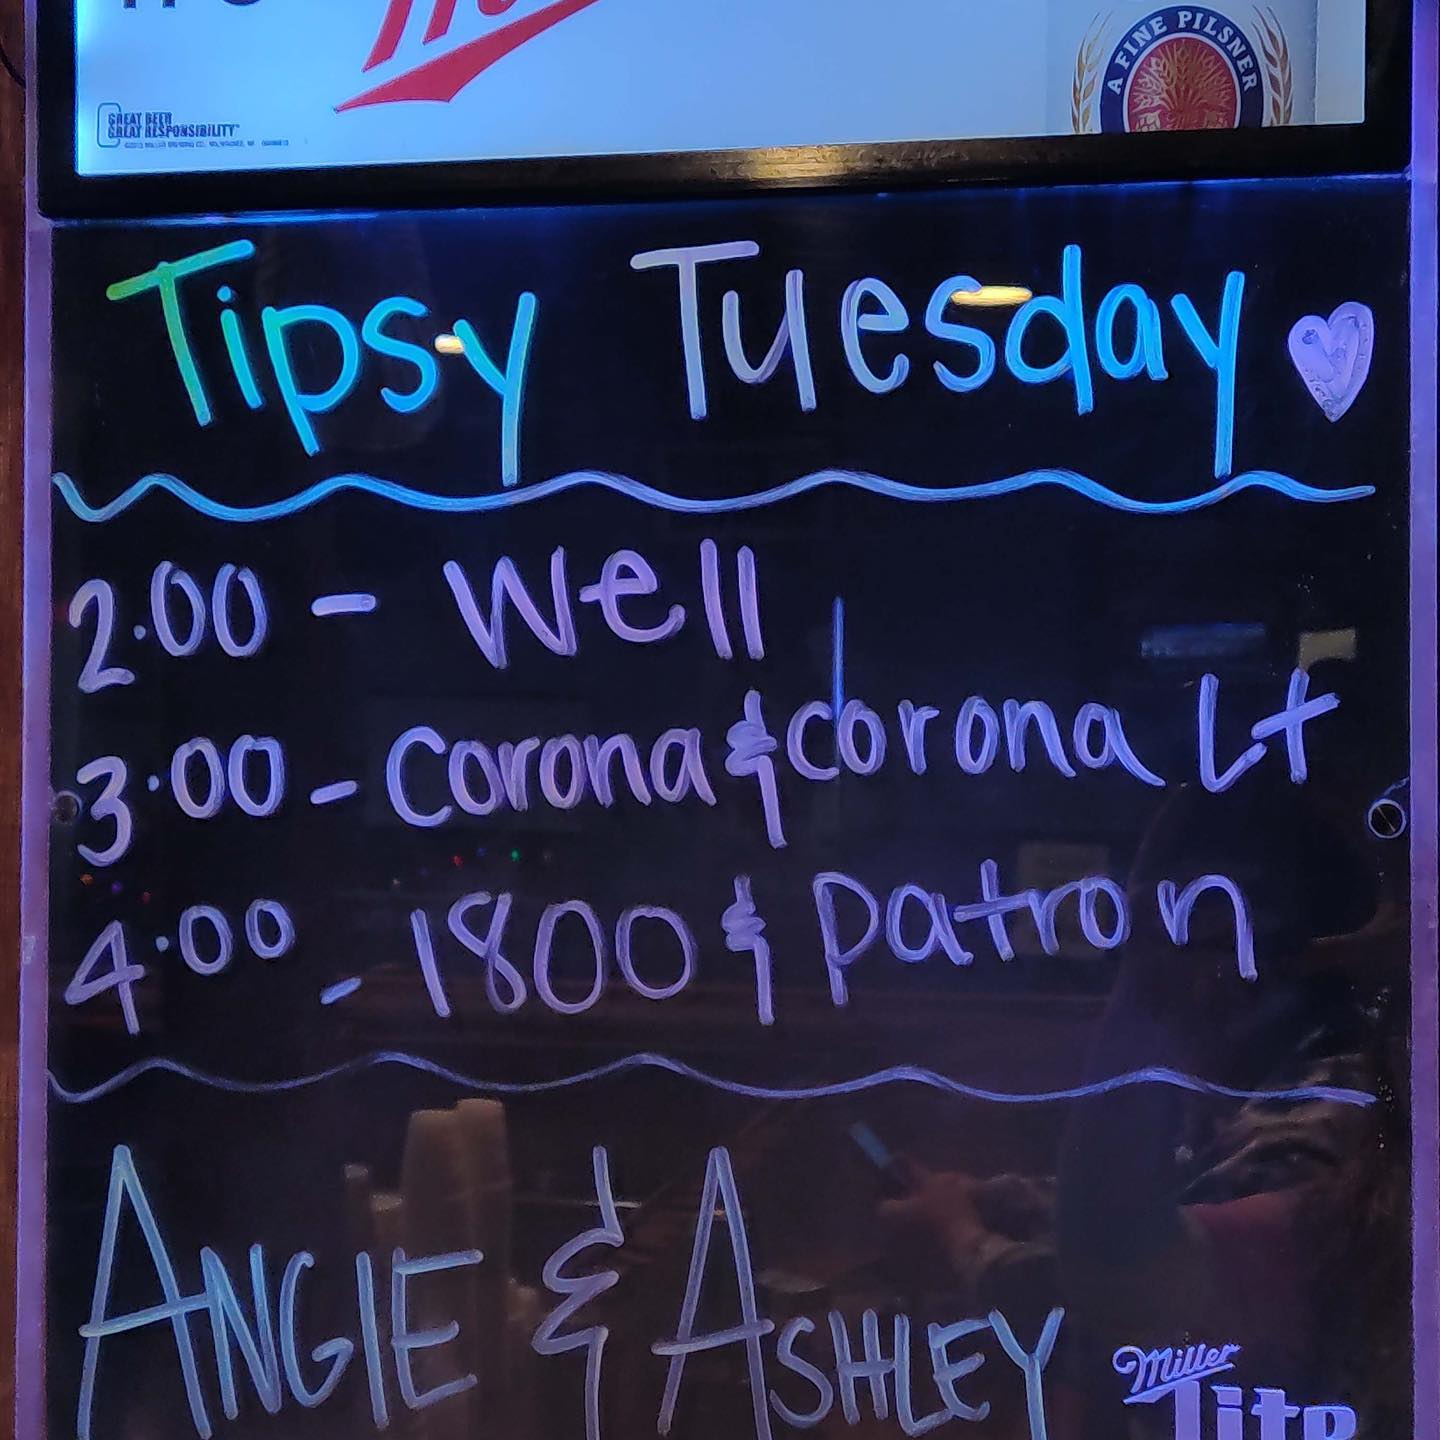 A FINE PILSNER
GREAT BEER
GREAT RESPONSIBILITY
Tipsy Tuesday
2.00 - Well
3.00 - Corona & corona Lt
4.00 - 1800 & Patron
ANGIE & ASHLEY
Miller
Lite